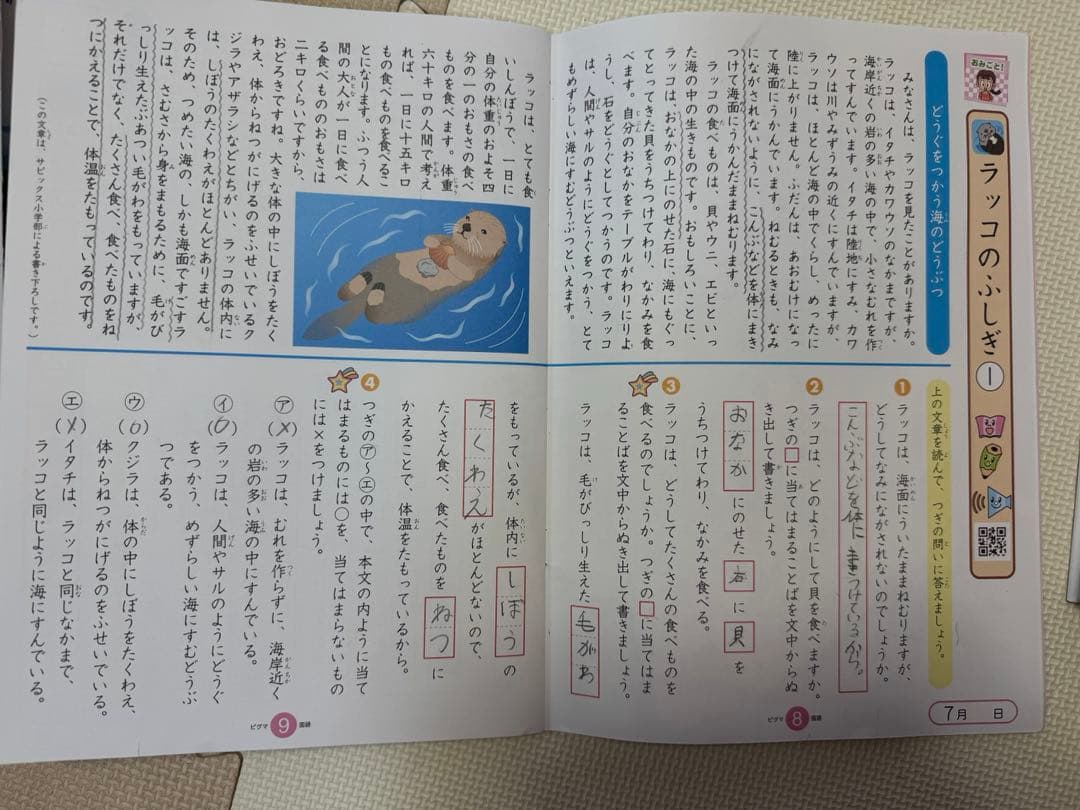 おみごと!
ラッコのふしぎ①
どうぐをつかう海のどうぶつ
みなさんは、ラッコを見たことがありますか。
ラッコは、イタチやカワウソのなかまですが、
海岸近くの岩の多い海の中で、小さなむれを作
ってすんでいます。イタチは陸地にすみ、カワ
ウソは川やみずうみの近くにすんでいますが、
ラッコは、ほとんど海の中でくらし、めったに
陸に上がりません。ふだんは、あおむけになっ
て海面にうかんでいます。ねむるときも、なみ
にながされないように、こんぶなどを体にまき
つけて海面にうかんだままねむります。
ラッコの食べものは、貝やウニ、エビといっ
た海の中の生きものです。おもしろいことに、
ラッコは、おなかの上にのせた石に、海にもぐっ
てとってきた貝をうちつけてわり、なかみを食
べます。自分のおなかをテーブルがわりにりよ
うし、石をどうぐとしてつかうのです。ラッコ
は、人間やサルのようにどうぐをつかう、とて
もめずらしい海にすむどうぶつといえます。
ラッコは、とても食
いしんぼうで、一日に
自分の体重のおよそ四
分の一のおもさの食べ
ものを食べます。体重
六十キロの人間で考え
れば、一日に十五キロ
もの食べものを食べるこ
とになります。ふつう人
間の大人が一日に食べ
る食べもののおもさは
二キロくらいですから、
おどろきですね。大きな体の中にしぼうをたく
わえ、体からねつがにげるのをふせいでいるク
ジラやアザラシなどとちがい、ラッコの体内に
は、しぼうのたくわえがほとんどありません。
そのため、つめたい海の、しかも海面ですごすラ
ッコは、さむさから身をまもるために、毛がび
っしり生えたぶあつい毛がわをもっていますが、
それだけでなく、たくさん食べ、食べたものをね
つにかえることで、体温をたもっているのです。
(この文章は、サピックス小学部による書き下ろしです。)
上の文章を読んで、つぎの問いに答えましょう。
1 ラッコは、海面にういたままねむりますが、
どうしてなみにながされないのでしょうか。
こんぶなどを体にまきつけているから。
2 ラッコは、どのようにして貝を食べますか。
つぎの□に当てはまることばを文中からぬ
き出して書きましょう。
おなかにのせた石に貝を
うちつけてわり、なかみを食べる。
3 ラッコは、どうしてたくさんの食べものを
食べるのでしょうか。つぎの□に当てはま
ることばを文中からぬき出して書きましょう。
ラッコは、毛がびっしり生えた毛がわ
をもっているが、体内にしぼうの
たくわえがほとんどないので、
たくさん食べ、食べたものをねつに
かえることで、体温をたもっているから。
4 つぎの㋐〜㋓の中で、本文の内ように当て
はまるものには○を、当てはまらないもの
には×をつけましょう。
㋐(×)ラッコは、むれを作らずに、海岸近く
の岩の多い海の中にすんでいる。
㋑(○)ラッコは、人間やサルのようにどうぐ
をつかう、めずらしい海にすむどうぶ
つである。
㋒(○)クジラは、体の中にしぼうをたくわえ、
体からねつがにげるのをふせいでいる。
㋓(×)イタチは、ラッコと同じなかまで、
ラッコと同じように海にすんでいる。
7月 日
ピグマ 8 国語
ピグマ 9 国語